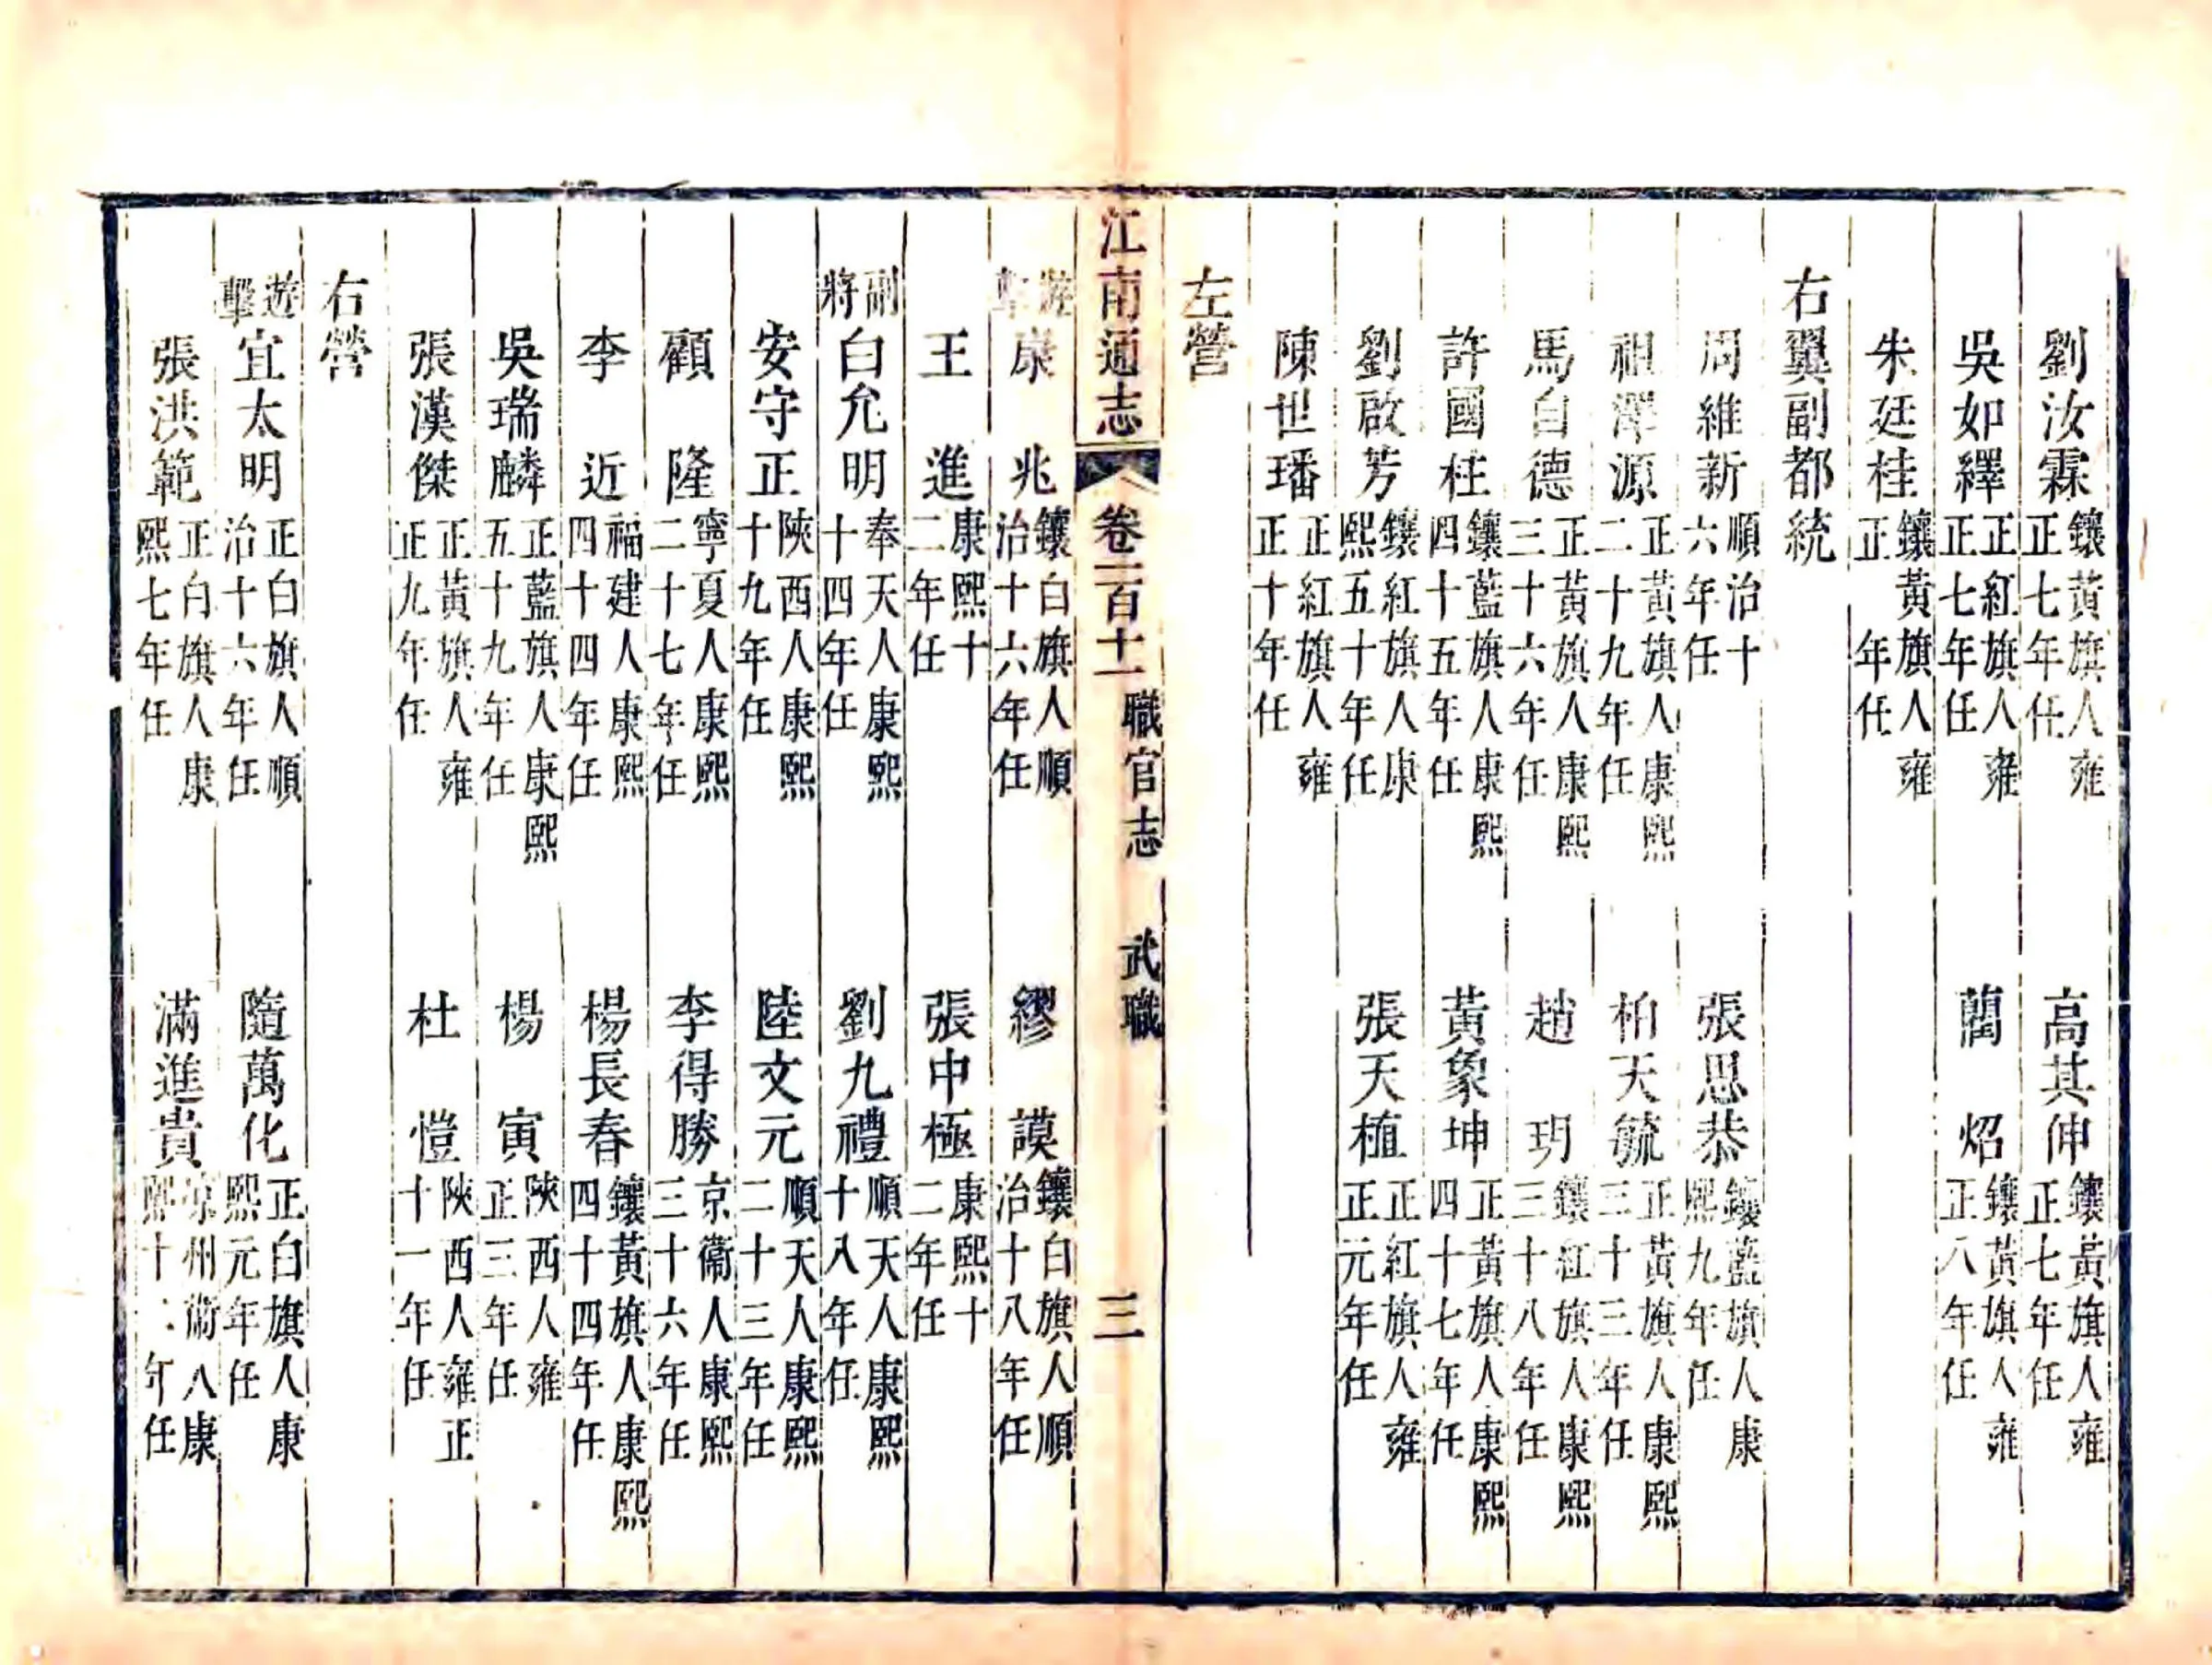 劉汝霖鑲黃旗人雍正七年任　高其伸鑲黃旗人雍正七年任
吳如繹正紅旗人雍正七年任　藺　炤鑲黃旗人雍正八年任
朱廷桂鑲黃旗人雍正　年任
右翼副都統
周維新順治十六年任　張思恭鑲藍旗人康熙九年任
祖澤源正黃旗人康熙二十九年任　柏天毓正黃旗人康熙三十三年任
馬自德正黃旗人康熙三十六年任　趙　玥鑲紅旗人康熙三十八年任
許國柱鑲藍旗人康熙四十五年任　黃象坤正黃旗人康熙四十七年任
劉啟芳鑲紅旗人康熙五十年任　張天植正紅旗人雍正元年任
陳世璠正紅旗人雍正十年任
左營
江南通志　卷一百十一　職官志　武職　三
遊擊康　兆鑲白旗人順治十六年任　繆　謨鑲白旗人順治十八年任
王　進康熙十二年任　張中極康熙十二年任
副將白允明奉天人康熙十四年任　劉九禮順天人康熙十八年任
安守正陝西人康熙十九年任　陸文元順天人康熙二十三年任
顧　隆寧夏人康熙二十七年任　李得勝京衞人康熙三十六年任
李　近福建人康熙四十四年任　楊長春鑲黃旗人康熙四十四年任
吳瑞麟正藍旗人康熙五十九年任　楊　寅陝西人雍正三年任
張漢傑正黃旗人雍正九年任　杜　愷陝西人雍正十一年任
右營
遊擊宜太明正白旗人順治十六年任　隨萬化正白旗人康熙元年任
張洪範正白旗人康熙七年任　滿進貴涼州衞人康熙十二年任